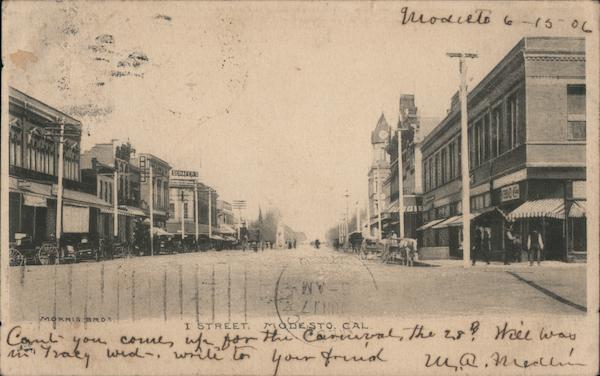 Modesto 6-15-06
SCHAFER'S
MODESTO
JUN 17
AM
MORRIS BROS
I STREET, MODESTO, CAL.
Cant you come up for the Carnival, the 28? Will was
in Tracy wed-. write to your friend M.A.